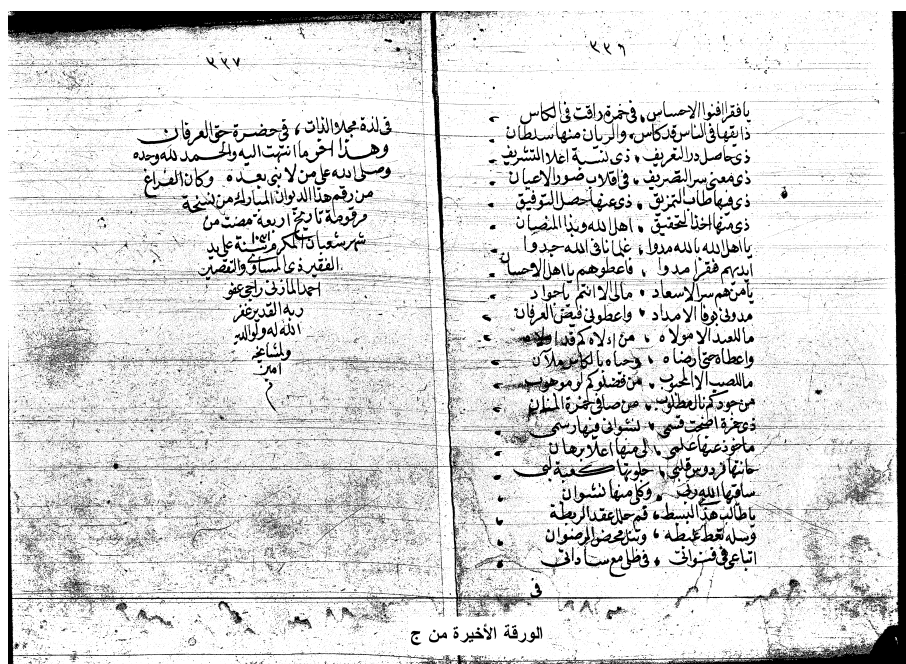 ٣٣٦
يا فقرا افنوا الاحساس ، في خمرة راقت في الكاس
ذايقها في الناس قد كاس ، والريان منها سلطان
ذي حاصل در التعريف ، ذي نسبة اعلا التشريف
ذي معنى سر التصريف ، في اقلاب صور الاعيان
ذي فيها طاب التمزيق ، ذي عنها حصل التوفيق
ذي منها اخذ التحقيق ، اهل الله وبذا المنصان
يا اهل الله بالله مدوا ، غلمانا في الله جدوا
ايديهم فقرا مدوا ، فاعطوهم يا اهل الاحسان
يا من هم سر الاسعاد ، مالي الا انتم يا جواد
مدوني بوفا الامداد ، واعطوني فيض العرفان
ما للعبد الا مولاه ، من
واعطاه حتى ارضاه ، وحباه بالكاس ملآن
ما للصب الا المحبوب ، من فضلوكم لو موهوب
من جودكم نال مطلوب ، من صافي خمرة المنان
ذي خمرة اضحت قسمي ، نشواني فيها رسمي
ماخوذ عنها علمي ، لي منها اعلا برهان
حانتها فردوس قلبي ، جلوتها كعبة لبي
ساقيها الله ربي ، وكلي منها نشوان
يا طالب هذي البسطة ، قم حل عقد الربطة
وسله تعط غبطه ، وتنل محض الرضوان
اتباعي في نشواتي ، في ظلي مع ساداتي
في
٣٣٧
في لذة مجلا الذات ، في حضرة حق العرفان
وهذا اخر ما انتهت اليه والحمد لله وحده
وصلى الله على من لا نبي بعده وكان الفراغ
من رقم هذا الديوان المبارك من نسخة
مرقومة تاريخ اربعة مضت من
شهر شعبان المكرم سنة على يد
الفقير ذي المساوي والتقصير
احمد المازني راجي عفو
ربه القدير غفر
الله له ولوالديه
ولمشايخه
امين
م
الورقة الأخيرة من ج